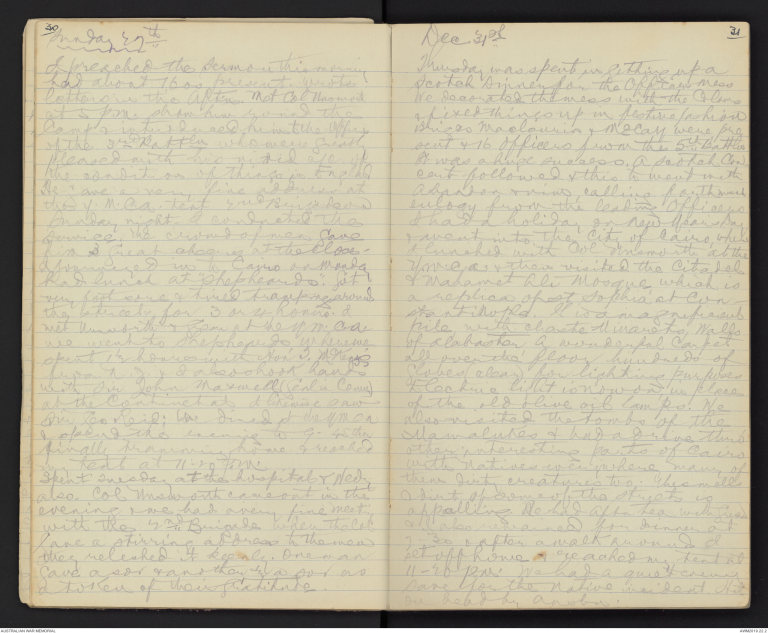 30
Sunday 27th
I preached the sermon this morning
had about 160 present. Wrote
letters in the Aftn. Met Col Unsworth
at 5 p.m. show him round the
Camp & introduced him to the Officers
of the 3rd Battln who were greatly
pleased with
the condition of things in England
He gave a very fine address at
the Y.M.C.A. tent 2nd Brigade on
Sunday night. I conducted the
service. The crowd of men gave
him 3 great cheers at the close.
in to Cairo on Monday
had lunch at Shepheards. Got
very foot sore & tired tramping around
the city for 3 or 4 hours. I
met Unsworth & at the Y.M.C.A.
we went to Shepheards where we
spent 1½ hours with Hon J. McKenzie
from N.Z. I also shook hands
with Sir John Maxwell (Col in Comm)
at the Continental & saw
Sir Geo Reid. We dined at the YMCA
& spend the evening to 9-45 then
finally tramming home & reached
my tent at 11-20 p.m.
Spent Tuesday at the hospital & Wedy
also. Col Unsworth came out in the
evening & we had a very fine meeting
with the 2nd Brigade when the Col
gave a stirring address to the men
they relished it keenly. One man
gave a sov & another ½ a sov as
a token of their gratitude.
31
Dec. 31st
Thursday was spent in getting up a
Scotch Dinner for the Officers Mess
We decorated the mess with the Colors
& fixed things up in festive fashion
Bridges Maclaurin & McCay were pre
sent & 16 Officers from the 5th Battln
It was a huge success. A Scotch Con
cert followed & this to went with
abandon & vim, calling for the
eulogy from the leading Officers
I had a holiday on New Years day
& went into the City of Cairo, where
I lunched with Col Unsworth at the
Y.M.C.A. & then visited the Citadel
& Mahamet Ali Mosque, which is
a replica of St Sophia at Con
stantinople. It is a magnificent
pile with chaste Minarets, Walls
of alabaster. A wonderful Carpet
all over the floor, hundreds of
Globes clear for lighting purposes
Electric light is now on in place
of the old Olive oil lamps. We
also visited the tombs of the
Mamalukes & had a drive thro
other interesting parts of Cairo
with Natives everywhere many of
them dirty creatures too. The smells
& dirt of some of the streets is
appalling. We had Aftn tea with
& I also remained for Dinner at
7-30 & after a walk around I
set off home reached my tent at
11-20 p.m. We had a quiet evening
save for the native incident
in bed by
AUSTRALIAN WAR MEMORIAL
AWM2019.22.2